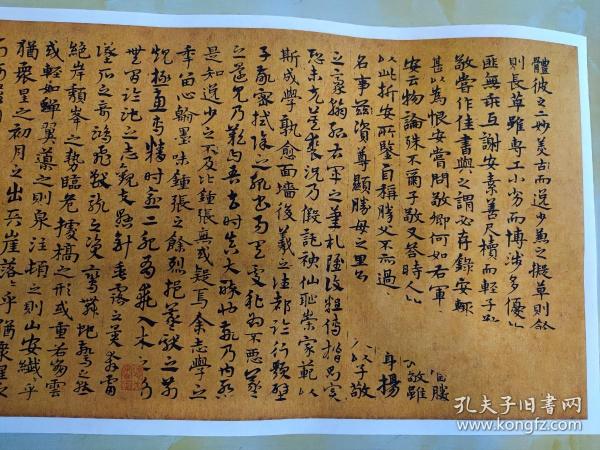 體彼之二妙美古而逸少兼之擬草則餘
則長草雖專工小劣而博涉多優
匪無乖互謝安素善尺牘而輕子敬
敬嘗作佳書與之謂必存錄安輒
甚以為恨安嘗問敬卿何如右軍
安云物論殊不爾子敬又答時人
以此折安所鑒自稱勝父不亦過
名事茲資尊顯勝母之里
勝
敬雖
身揚
以子敬
之豪翰紹右軍之筆札雖復粗傳楷則實
恐未克箕裘況乃假託神仙恥崇家範以
斯成學孰愈面牆後羲之往都臨行題壁
子敬密拭除之輒書易其處私為不惡羲
之還見乃歎曰吾去時真大醉也敬乃內慙
是知逸少之不及比鍾張無或疑焉余志學之
年留心翰墨味鍾張之餘烈挹羲獻之前
規極慮專精時逾二紀有乖入木之術
無間臨池之志觀夫懸針垂露之異奔雷
墜石之奇鴻飛獸駭之姿鸞舞蛇驚之態
絕岸頹峯之勢臨危據槁之形或重若崩雲
或輕如蟬翼導之則泉注頓之則山安纖纖乎
猶衆星之初月之出天崖落落乎猶衆星之
孔夫子旧书网
www.kongfz.com